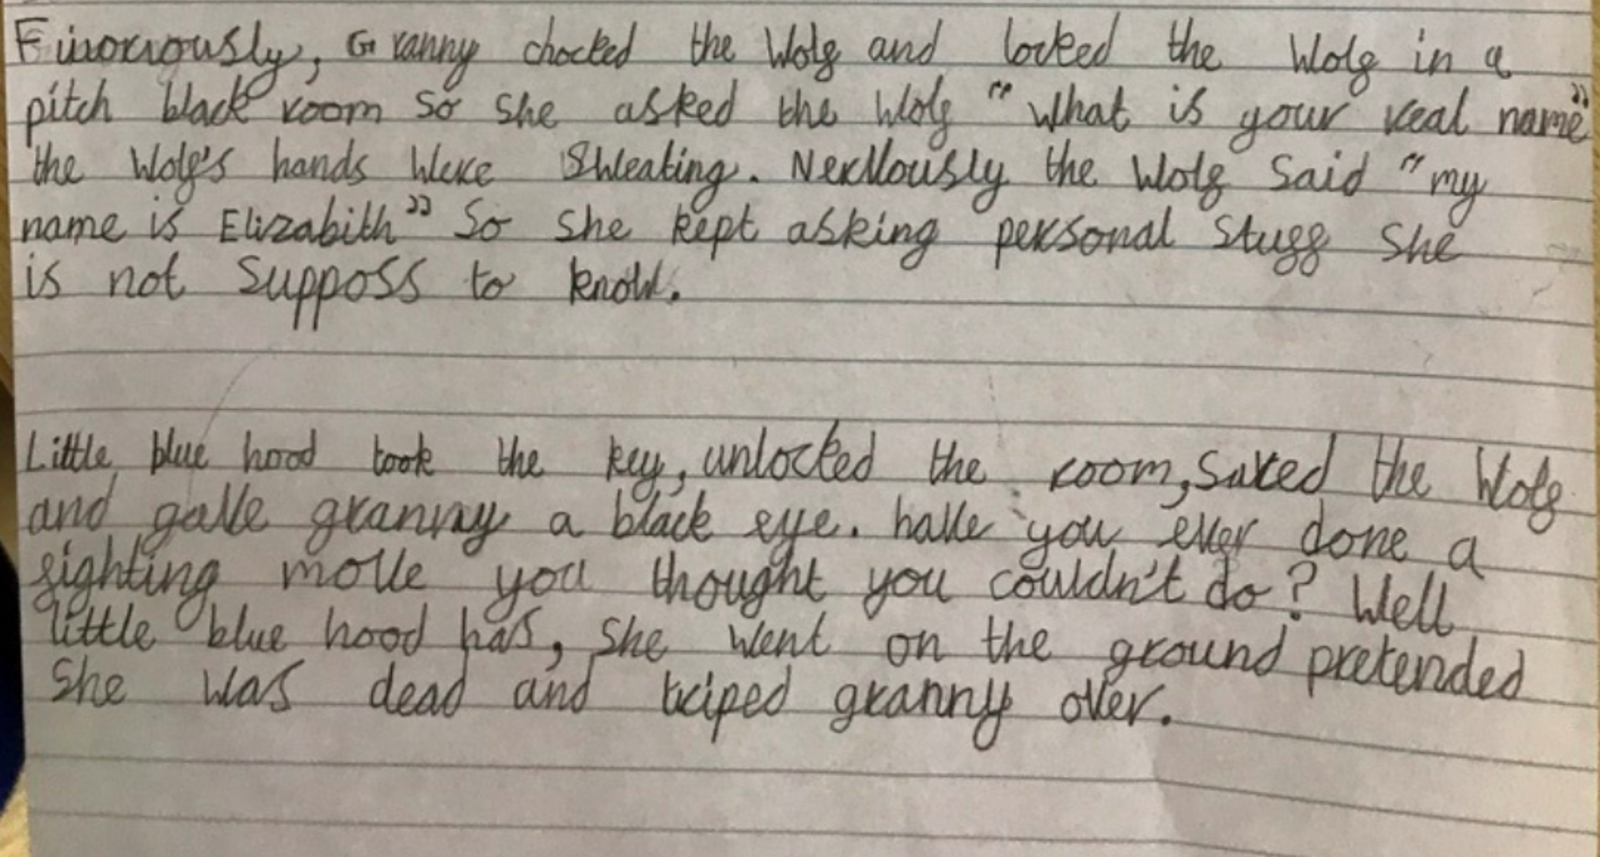 Finoriously, Granny chocked the Wolf and locked the Wolf in a
pitch black room so she asked the Wolf "What is your real name"
the Wolf's hands were Sweating. Nervously the Wolf Said "my
name is Elizabith" So She kept asking personal Stuff She
is not Supposs to know.
Little blue hood took the key, unlocked the room, Saved the Wolf
and gave granny a black eye. have you ever done a
fighting move you thought you couldn't do? Well
little blue hood has, She went on the ground pretended
She was dead and triped granny over.